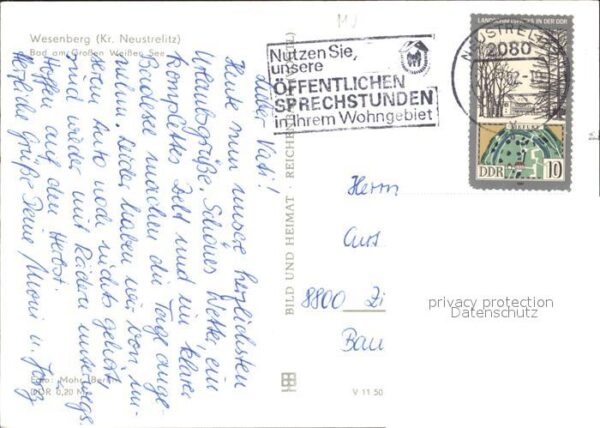 Wesenberg (Kr. Neustrelitz)
Bad am Großen Weißen See
Lieber Vati!
Heute nun unsere herzlichsten
Urlaubsgrüße. Schönes Wetter, ein
komplettes Zelt und ein klarer
Badesee machen die Tage ange-
nehm. Leider haben wir von un-
serem Auto noch nichts gehört
und wieder mit Rädern unterwegs.
Hoffen auf den Herbst.
Herzliche Grüße Deine Moni u. Jörg
Foto: Mohr, Berlin
DDR 0,20 M
BILD UND HEIMAT · REICHENBACH
V 11 50
Nutzen Sie,
unsere
ÖFFENTLICHEN
SPRECHSTUNDEN
in Ihrem Wohngebiet
NEUSTRELITZ
2080
IN DER DDR
DDR
10
Herrn
Curt
8800 Zi
Bau
privacy protection
Datenschutz